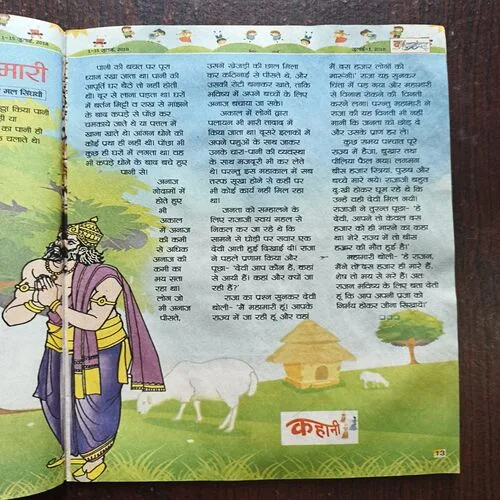 1-15 जुलाई, 2018
मारी
मल सिंघवी
ग्रा किया पानी
ही या
का पानी ही
चलाते थे।
पानी की बचत पर पूरा
ध्यान रखा जाता था। पानी की
आपूर्ति घर बैठे तो नहीं होती
थी। दूर से लाना पड़ता था। घरों
में बर्तन मिट्टी व राख से मांझने
के बाद कपड़े से पोंछ कर
चमकाये जाते थे या पत्तल में
खाना खाते थे। आंगन धोने की
कोई प्रथा ही नहीं थी। पोंछा भी
कुछ ही घरों में लगता था। वह
भी कपड़े धोने के बाद बचे हुए
पानी से।
अनाज
गोदामों में
होते हुए
भी
अकाल
में अनाज
की कमी
से अधिक
अनाज की
कमी का
भय सता
रहा था।
लोग जो
भी अनाज
पीसते,
उसमें खेजड़ी की छाल मिला
कर कठिनाई से पीसते थे, और
उसकी रोटी बनाकर खाते, ताकि
भविष्य में अपने बच्चों के लिए
अनाज बचाया जा सके।
अकाल में लोगों द्वारा
पलायन भी भारी तादाद में
किया जाता था। दूसरे इलाकों में
अपने पशुओं के साथ जाकर
उनके चारा-पानी की व्यवस्था
के साथ मजदूरी भी कर लेते
थे। परन्तु इस महाकाल में सब
तरफ सूखा होने से कहीं पर
भी कोई कार्य नहीं मिल रहा
था।
जनता को सम्हालने के
लिए राजाजी स्वयं महल से
निकल कर जा रहे थे कि
सामने से घोड़ी पर सवार एक
देवी आती हुई दिखाई दी। राजा
ने पहले प्रणाम किया और
पूछा- 'देवी आप कौन हैं, कहां
से आयी हैं। कहां और क्यों जा
रही हैं?
राजा का प्रश्न सुनकर देवी
बोली- 'मैं महामारी हूं। आपके
राज्य में जा रही हूं और वहां
जुलाई-1, 2018
मैं दस हजार लोगों की
मारूंगी।' राजा यह सुनकर
चिंता में पड़ गया और महामारी
से विनाश रोकने की विनती
करने लगा। परन्तु महामारी ने
राजा की यह विनती भी नहीं
मानी कि जनता को छोड़ दे
और उसके प्राण हर ले।
कुछ समय पश्चात पूरे
राज्य में हैजा, बुखार तथा
पीलिया फैल गया। लगभग
बीस हजार स्त्रियां, पुरुष और
बच्चे मारे गये। राजाजी बहुत
दुःखी होकर घूम रहे थे कि
उन्हें वही देवी मिल गयी।
राजाजी ने तुरन्त पूछा- 'हे
देवी, आपने तो केवल दस
हजार को ही मारने का कहा
था। मेरे राज्य में तो बीस
हजार की मौत हुई है।'
महामारी बोली- 'हे राजन,
मैंने तो दस हजार ही मारे हैं,
शेष तो भय से मरे हैं। अतः
राजन भविष्य के लिए बता देती
हूं कि आप अपनी प्रजा को
निर्भय होकर जीना सिखायें।'
कहानी
13